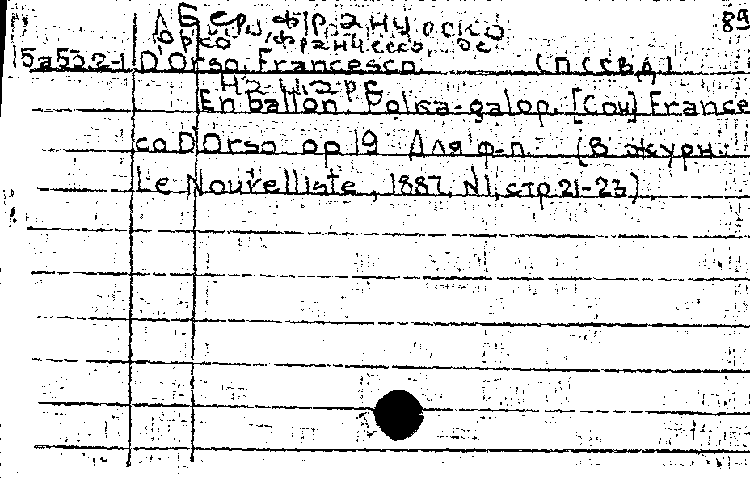 89
Орсо, Франческо, де
5а552-1 D'Orso, Francesco. (псевд)
На шаре
En ballon. Polka-galop. [Соч] France
co D'Orso op 19 Для ф-п. (В журн.
Le Nouvelliste, 1887, N1, стр 21-23).